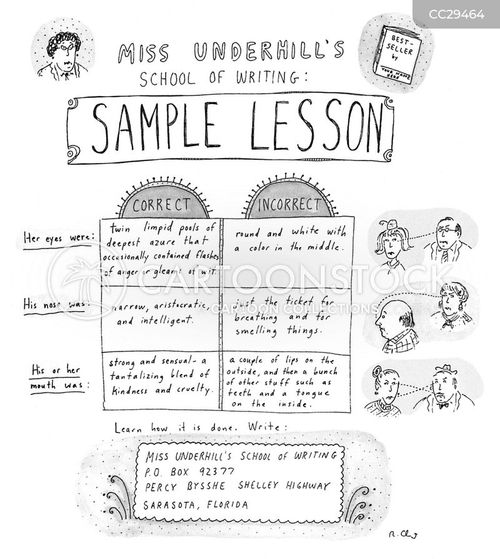 CC29464
MISS UNDERHILL'S
SCHOOL OF WRITING:
BEST-
SELLER
by
YOUR NAME
HERE
SAMPLE LESSON
CORRECT
INCORRECT
Her eyes were:
twin limpid pools of
deepest azure that
occasionally contained flashes
of anger or gleams of wit.
round and white with
a color in the middle.
CARTOONSTOCK
CARTOON COLLECTIONS
His nose was:
narrow, aristocratic,
and intelligent.
just the ticket for
breathing and for
smelling things.
His or her
mouth was:
strong and sensual - a
tantalizing blend of
kindness and cruelty.
a couple of lips on the
outside, and then a bunch
of other stuff such as
teeth and a tongue
on the inside.
Learn how it is done. Write:
MISS UNDERHILL'S SCHOOL OF WRITING
P.O. BOX 92377
PERCY BYSSHE SHELLEY HIGHWAY
SARASOTA, FLORIDA